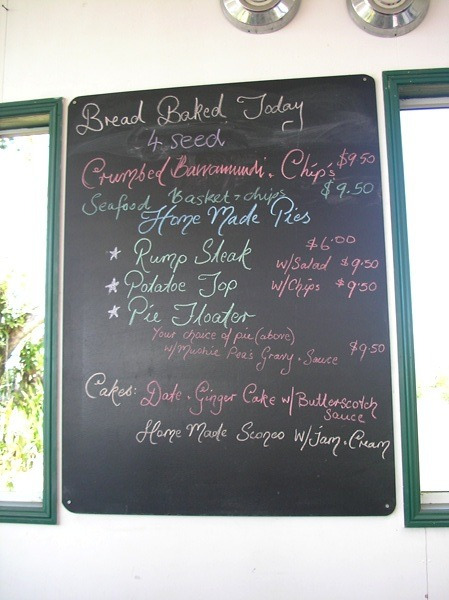 Bread Baked Today
4 seed
Crumbed Barramundi + Chip's $9.50
Seafood Basket + chips $9.50
Home Made Pies
* Rump Steak $6.00
w/Salad $9.50
* Potatoe Top w/Chips $9.50
* Pie Floater
Your choice of pie (above)
w/Mushie Pea's Gravy + Sauce $9.50
Cakes: Date + Ginger Cake w/Butterscotch
Sauce
Home Made Scones W/Jam + Cream